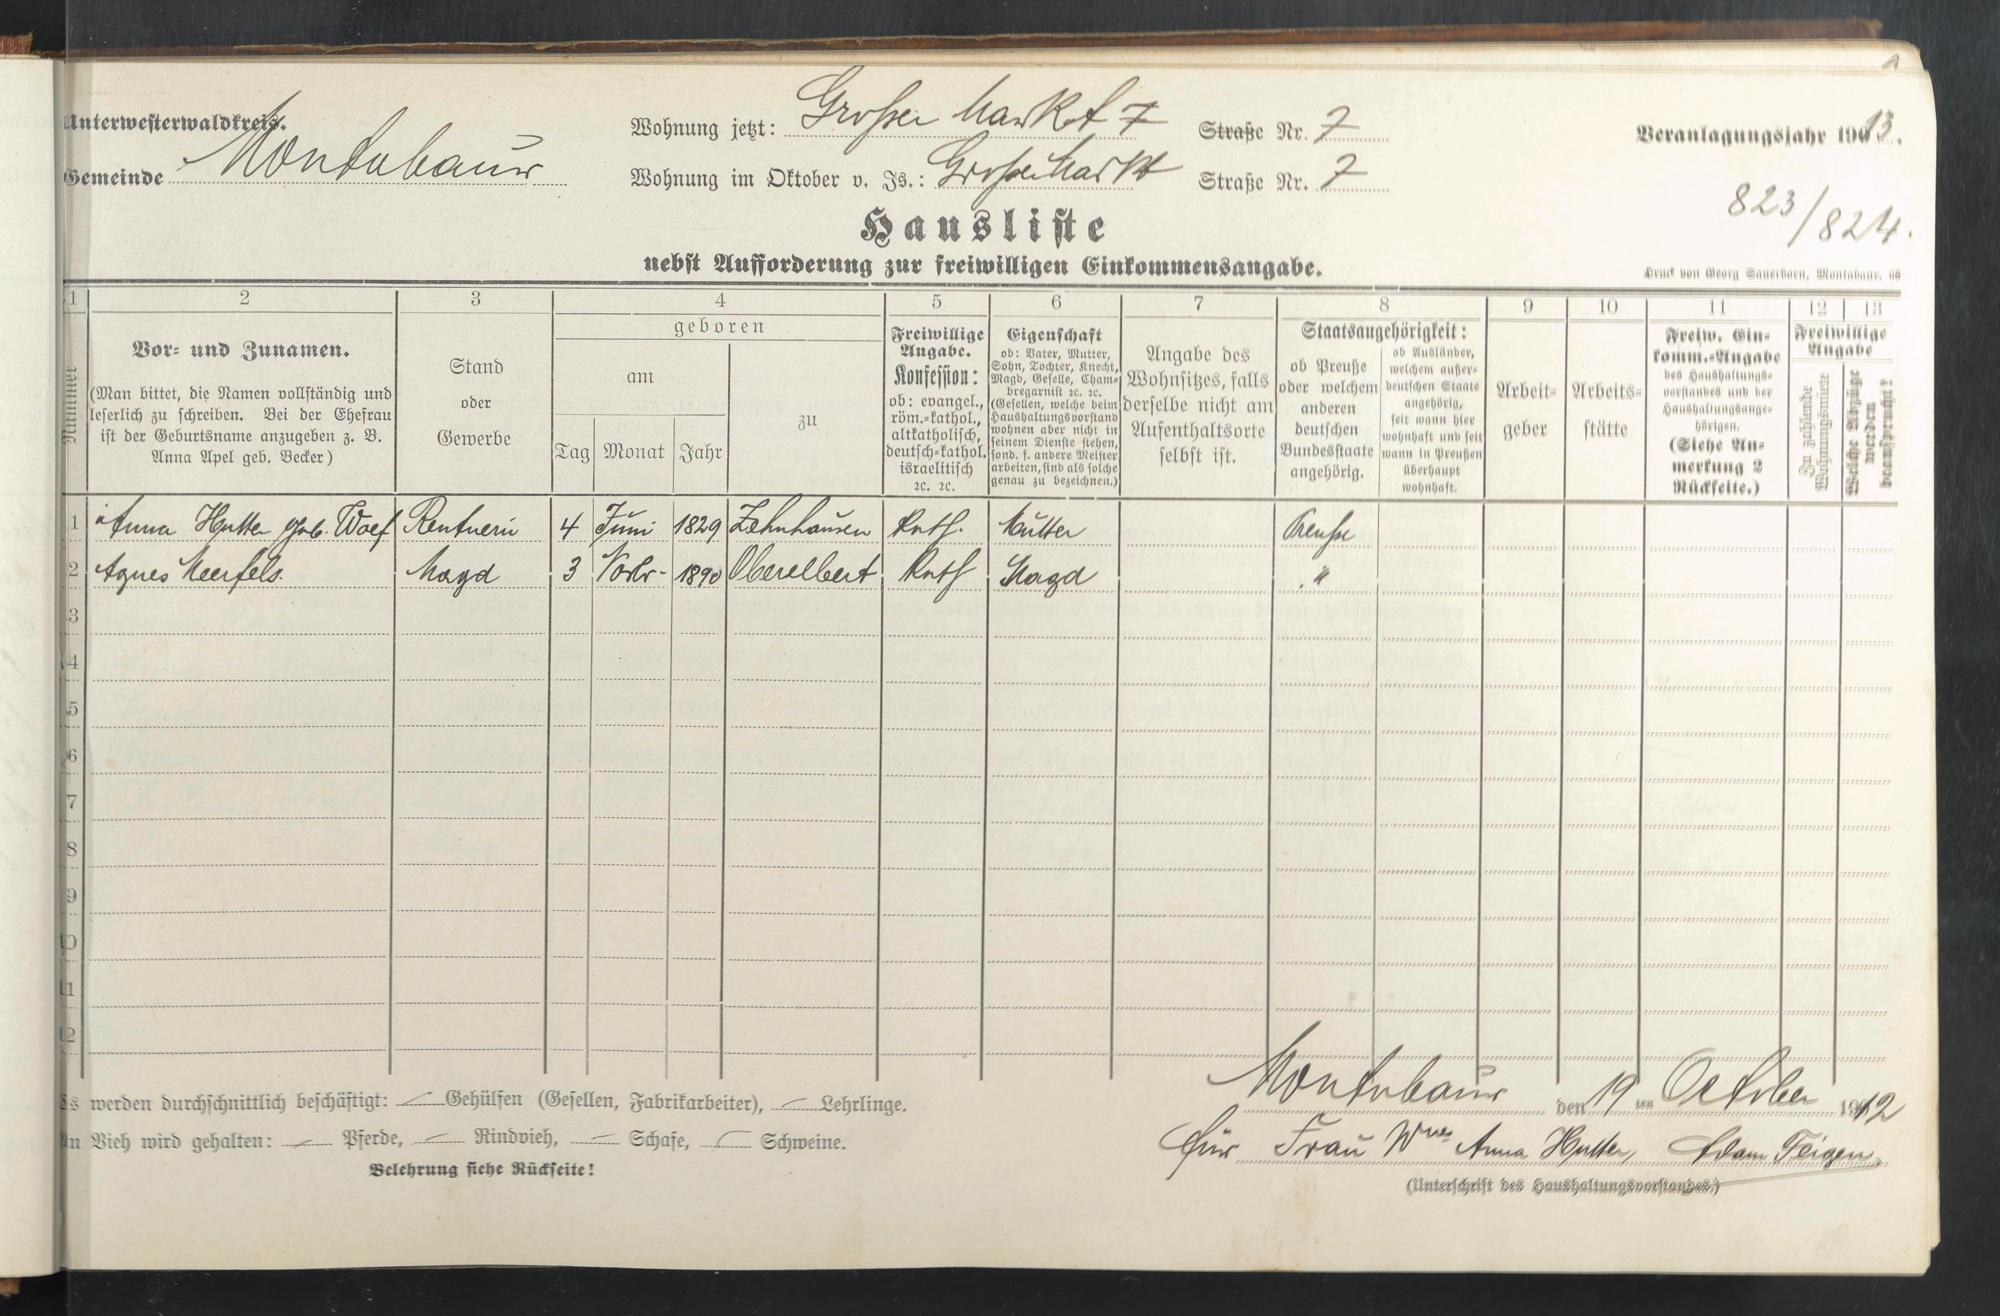 Unterwesterwaldkreis.
Gemeinde Montabaur
Wohnung jetzt: Großer Markt 7 Straße Nr. 7
Wohnung im Oktober v. Js.: Großer Markt Straße Nr. 7
Veranlagungsjahr 1913.
823/824.
Hausliste
nebst Aufforderung zur freiwilligen Einkommensangabe.
Druck von Georg Sauerborn, Montabaur.
1 2 3 4 5 6 7 8 9 10 11 12 13
Nummer
Vor- und Zunamen.
(Man bittet, die Namen vollständig und
leserlich zu schreiben. Bei der Ehefrau
ist der Geburtsname anzugeben z. B.
Anna Apel geb. Becker)
Stand
oder
Gewerbe
geboren
am
Tag Monat Jahr
zu
Freiwillige
Angabe.
Konfession:
ob: evangel.,
röm.-kathol.,
altkatholisch,
deutsch-kathol.
israelitisch
ꝛc. ꝛc.
Eigenschaft
ob: Vater, Mutter,
Sohn, Tochter, Knecht,
Magd, Geselle, Cham-
bregarnist ꝛc. ꝛc.
(Gesellen, welche beim
Haushaltungsvorstand
wohnen aber nicht in
seinem Dienste stehen,
sond. f. andere Meister
arbeiten, sind als solche
genau zu bezeichnen.)
Angabe des
Wohnsitzes, falls
derselbe nicht am
Aufenthaltsorte
selbst ist.
Staatsangehörigkeit:
ob Preuße
oder welchem
anderen
deutschen
Bundesstaate
angehörig.
ob Ausländer,
welchem außer-
deutschen Staate
angehörig,
seit wann hier
wohnhaft und seit
wann in Preußen
überhaupt
wohnhaft.
Arbeit-
geber
Arbeits-
stätte
Freiw. Ein-
komm.-Angabe
des Haushaltungs-
vorstandes und der
Haushaltungsange-
hörigen.
(Siehe An-
merkung 2
Rückseite.)
Freiwillige
Angabe
Zu zahlende
Wohnungsmiete
Welche Abzüge
werden
beansprucht?
1 Anna Hutter geb. Wolf Rentnerin 4 Juni 1829 Zehnhausen Kath. Mutter Preuße
2 Agnes Meerfels. Magd 3 Novbr. 1890 Oberelbert Kath Magd "
3
4
5
6
7
8
9
10
11
12
Es werden durchschnittlich beschäftigt: — Gehülfen (Gesellen, Fabrikarbeiter), — Lehrlinge.
An Vieh wird gehalten: — Pferde, — Rindvieh, — Schafe, — Schweine.
Belehrung siehe Rückseite!
Montabaur den 19 ten October 1912
für Frau Wwe Anna Hutter, Adam Feigen
(Unterschrift des Haushaltungsvorstandes.)